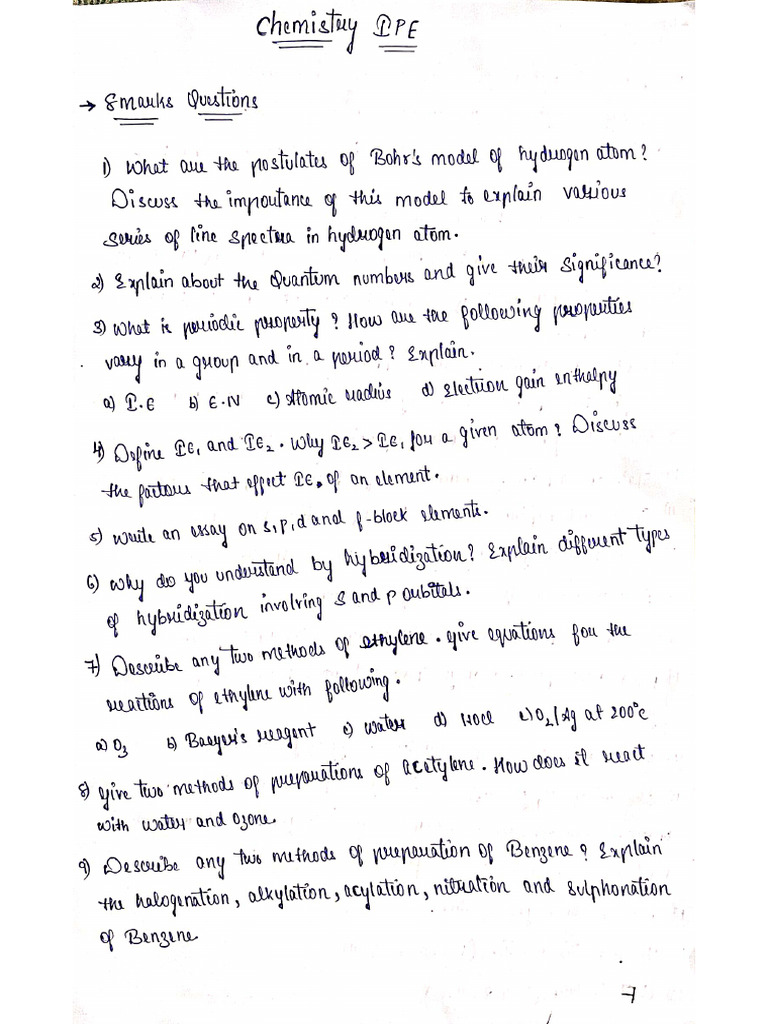 Chemistry IPE
→ 8marks Questions
1) What are the postulates of Bohr's model of hydrogen atom?
Discuss the importance of this model to explain various
series of line spectra in hydrogen atom.
2) Explain about the Quantum numbers and give their significance?
3) What is periodic property? How are the following properties
vary in a group and in a period? Explain.
a) I.E b) E.N c) Atomic radius d) Electron gain enthalpy
4) Define IE₁ and IE₂. Why IE₂ > IE₁ for a given atom? Discuss
the factors that effect IE of an element.
5) Write an essay on s, p, d and f-block elements.
6) Why do you understand by hybridization? Explain different types
of hybridization involving s and p orbitals.
7) Describe any two methods of ethylene. Give equations for the
reactions of ethylene with following.
a) O₃ b) Baeyer's reagent c) Water d) HOCl e) O₂/Ag at 200°c
8) Give two methods of preparations of acetylene. How does it react
with water and Ozone.
9) Describe any two methods of preparation of Benzene? Explain
the halogenation, alkylation, acylation, nitration and sulphonation
of Benzene
7